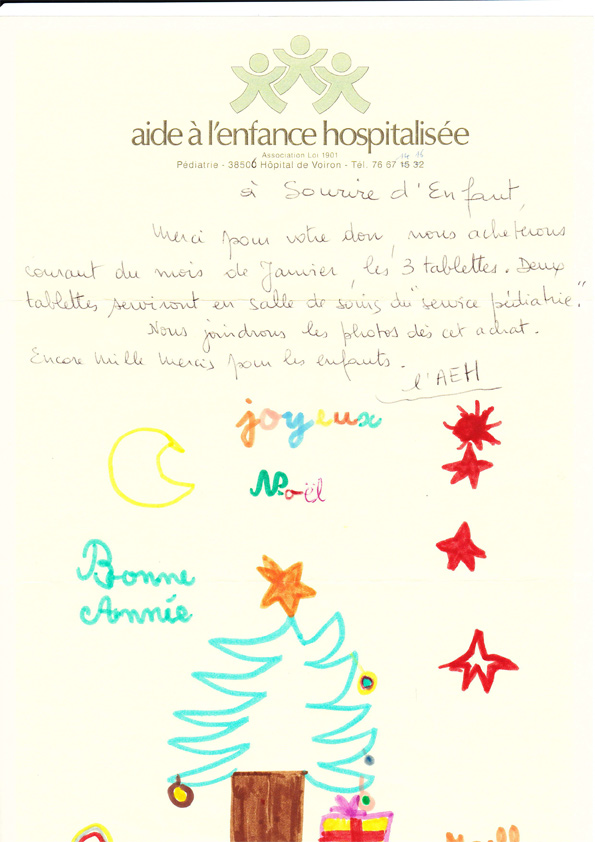 aide à l'enfance hospitalisée
Association Loi 1901
Pédiatrie - 38506 Hôpital de Voiron - Tél. 76 67 15 32
14 16
à Sourire d'Enfant,
Merci pour votre don, nous achèterons
courant du mois de Janvier, les 3 tablettes. Deux
tablettes serviront en salle de soins du "service pédiatrie".
Nous joindrons les photos dès cet achat.
Encore mille mercis pour les enfants.
l'AEH
joyeux
Noël
Bonne
Année